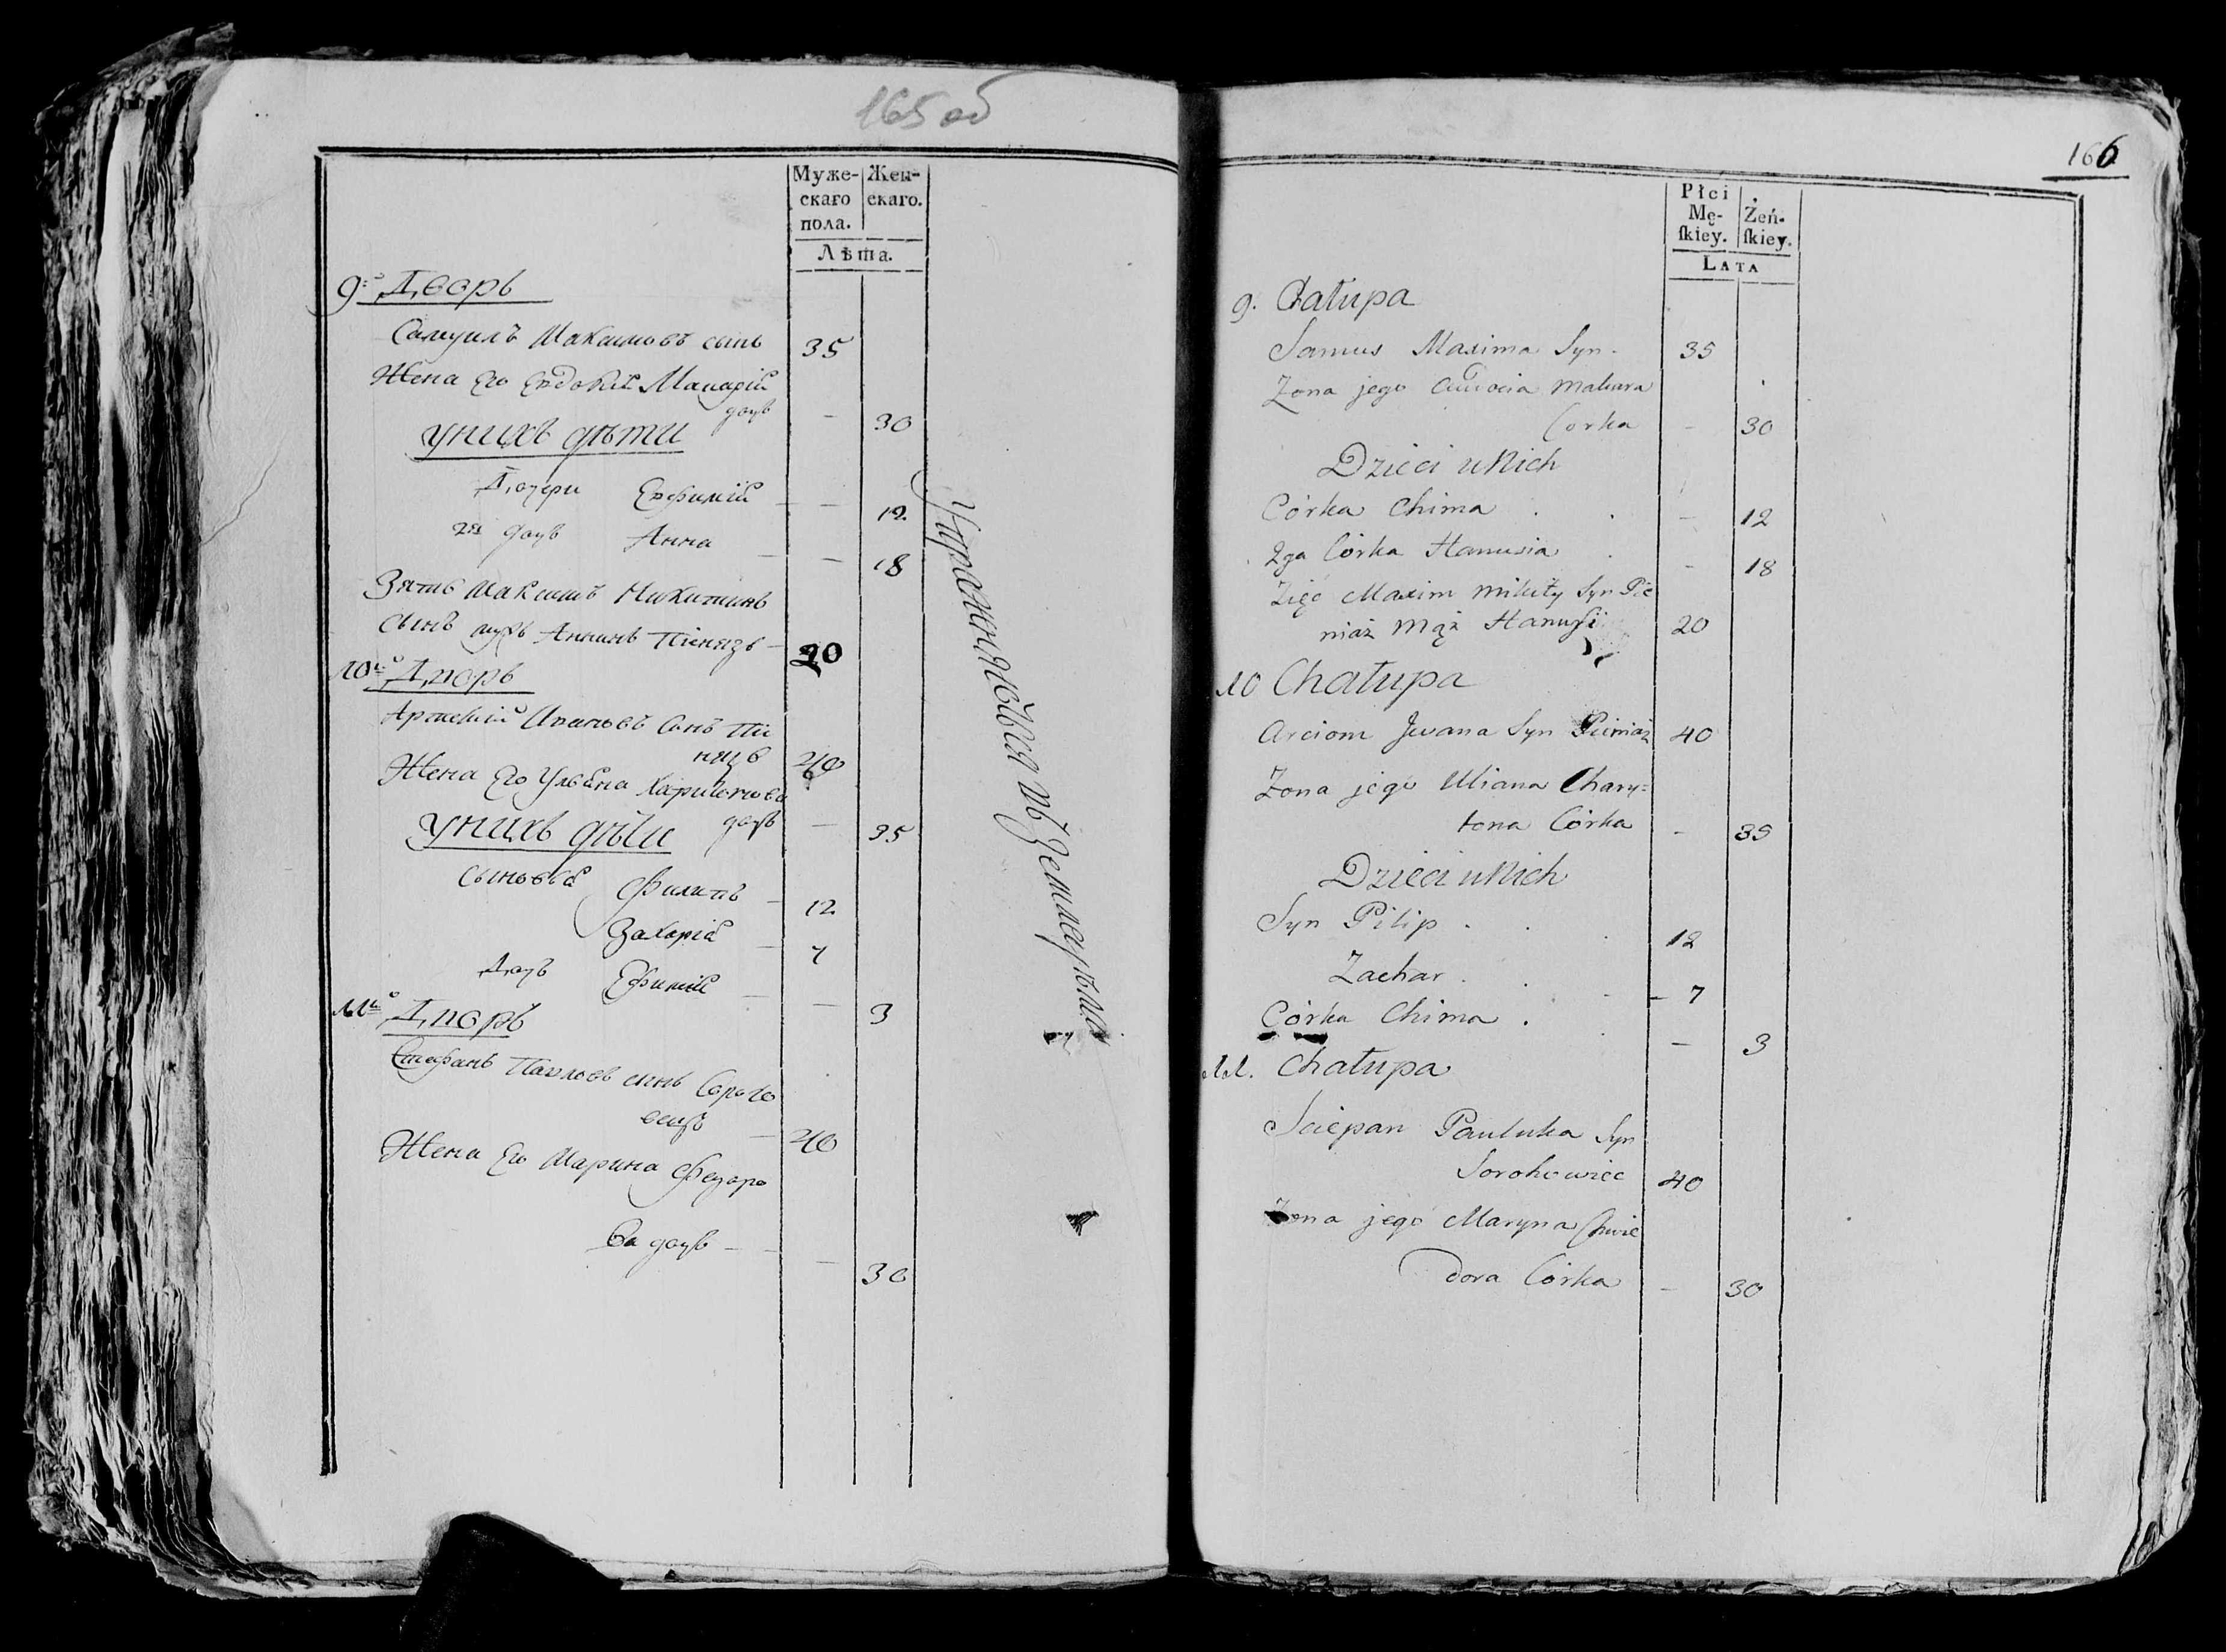 165 об
Муже-
скаго
пола.
Жен-
скаго.
Лѣта.
9е Дворъ
Самуилъ Максимовъ сынъ 35
Жена Его Евдокия Макарій
дочь — 30
У нихъ дѣти
Дочери Евфимія — — 12
2я дочь Анна — — 18
Зять Максимъ Никитинъ
сынъ мужъ Аннинъ Пінязь — 20
10е Дворъ
Артемій Ивановъ Сынъ Пі
нязь 40
Жена Его Ульяна Харитонова
дочь — 35
У нихъ дѣти
Сыновья Филипъ — 12
Захарія — 7
Дочь Ефимія — — 3
11е Дворъ
Стефанъ Павловъ сынъ Сороко
вецъ — 40
Жена Его Марина Федоро
ва дочь — — 30
166
Płci
Mę-
skiey.
Żeń-
skiey.
LATA
9. Chałupa
Samus Maxima Syn. 35
Zona jego Makara
Corka - 30
Dzieci u Nich
Córka Chima . . - 12
2ga Córka Hanusia . - 18
Zięć Maxim Mikity Syn Pie
niaż Mąż Hanusi 20
10 Chałupa
Arciom Jwana Syn Pieniaż 40
Zona jego Uliana Chary=
tona Córka - 35
Dzieci u Nich
Syn Pilip . . . 12
Zachar . . - 7
Córka Chima . . — 3
11. Chałupa
Sciepan Pauluka Syn
Sorokowiec 40
Zona jego Maryna Chwie
dora Córka - 30